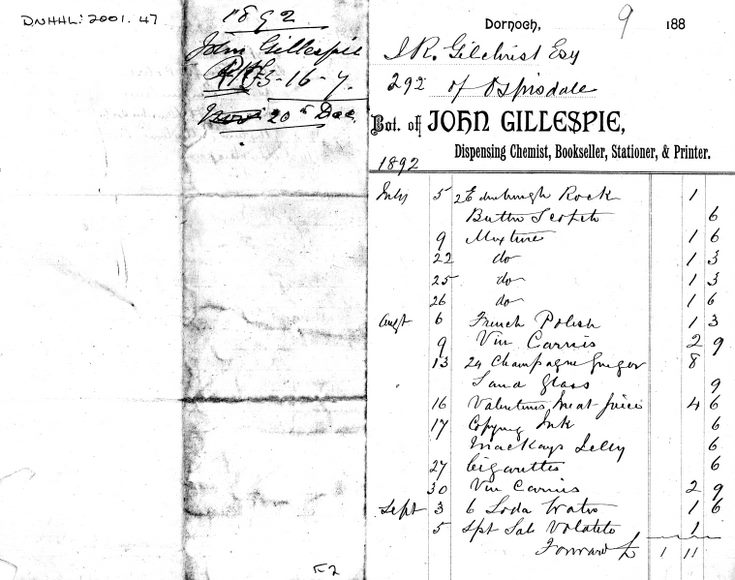 DNHHL: 2001. 47
1892
John Gillespie
£3-16-7.
20th Dec.
52
Dornoch, 9 188
J.R. Gilchrist Esq
292 of Ospisdale
Bot. of JOHN GILLESPIE,
Dispensing Chemist, Bookseller, Stationer, & Printer.
1892
July 5 2 Edinburgh Rock 1
Butter Scotch 6
9 Mixture 1 6
22 do 1 3
25 do 1 3
26 do 1 6
Augt 6 French Polish 1 3
9 Vin Carnis 2 9
13 24 Champagne Ginger 8
Sand Glass 9
16 Valentines Meat Juice 4 6
17 Copying Ink 6
Mackays Jelly 6
27 Cigarettes 6
30 Vin Carnis 2 9
Sept 3 6 Soda Water 1 6
5 Spt Sal Volatile 1
Forward £ 1 11